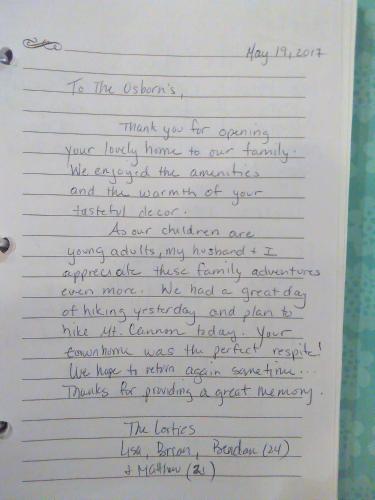 May 19, 2017
To The Osborn's,
Thank you for opening
your lovely home to our family.
We enjoyed the amenities
and the warmth of your
tasteful decor.
As our children are
young adults, my husband + I
appreciate these family adventures
even more. We had a great day
of hiking yesterday and plan to
hike Mt. Cannon today. Your
townhome was the perfect respite!
We hope to return again sometime...
Thanks for providing a great memory.
The Lorties
Lisa, Brian, Brendan (24)
+ Matthew (21)